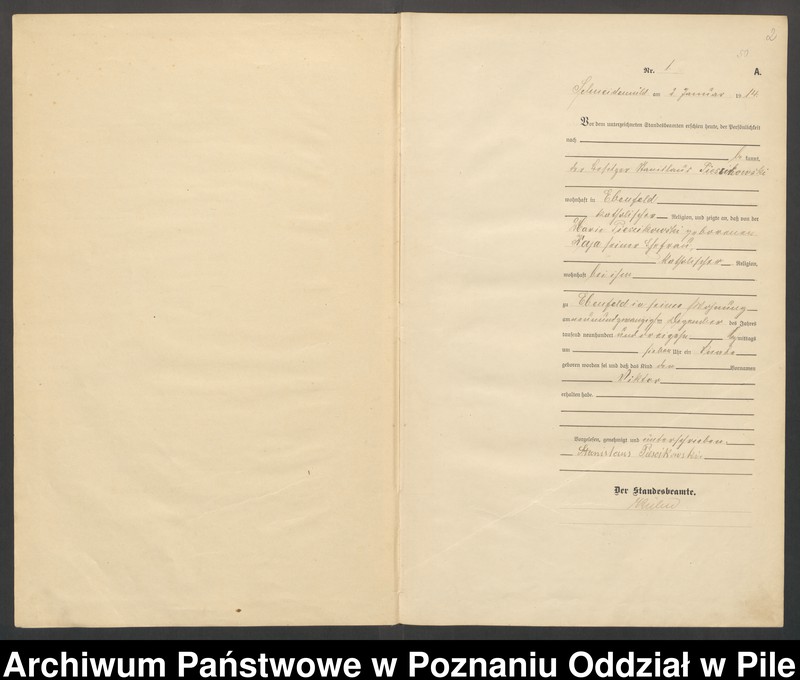 2
Nr. 1
A.
Schneidemühl am 2. Januar 1914
Vor dem unterzeichneten Standesbeamten erschien heute, der Persönlichkeit
nach
be kannt,
der Besitzer Stanislaus
wohnhaft in Ebenfeld
katholischer Religion, und zeigte an, daß von der
Marie geborenen
seiner Ehefrau,
katholischer Religion,
wohnhaft bei ihm
zu Ebenfeld in seiner Wohnung
am neunundzwanzigsten Dezember des Jahres
tausend neunhundert und dreizehn mittags
um sieben Uhr ein Knabe
geboren worden sei und daß das Kind den Vornamen
Viktor
erhalten habe.
Vorgelesen, genehmigt und unterschrieben
Stanislaus
Der Standesbeamte.
Archiwum Państwowe w Poznaniu Oddział w Pile